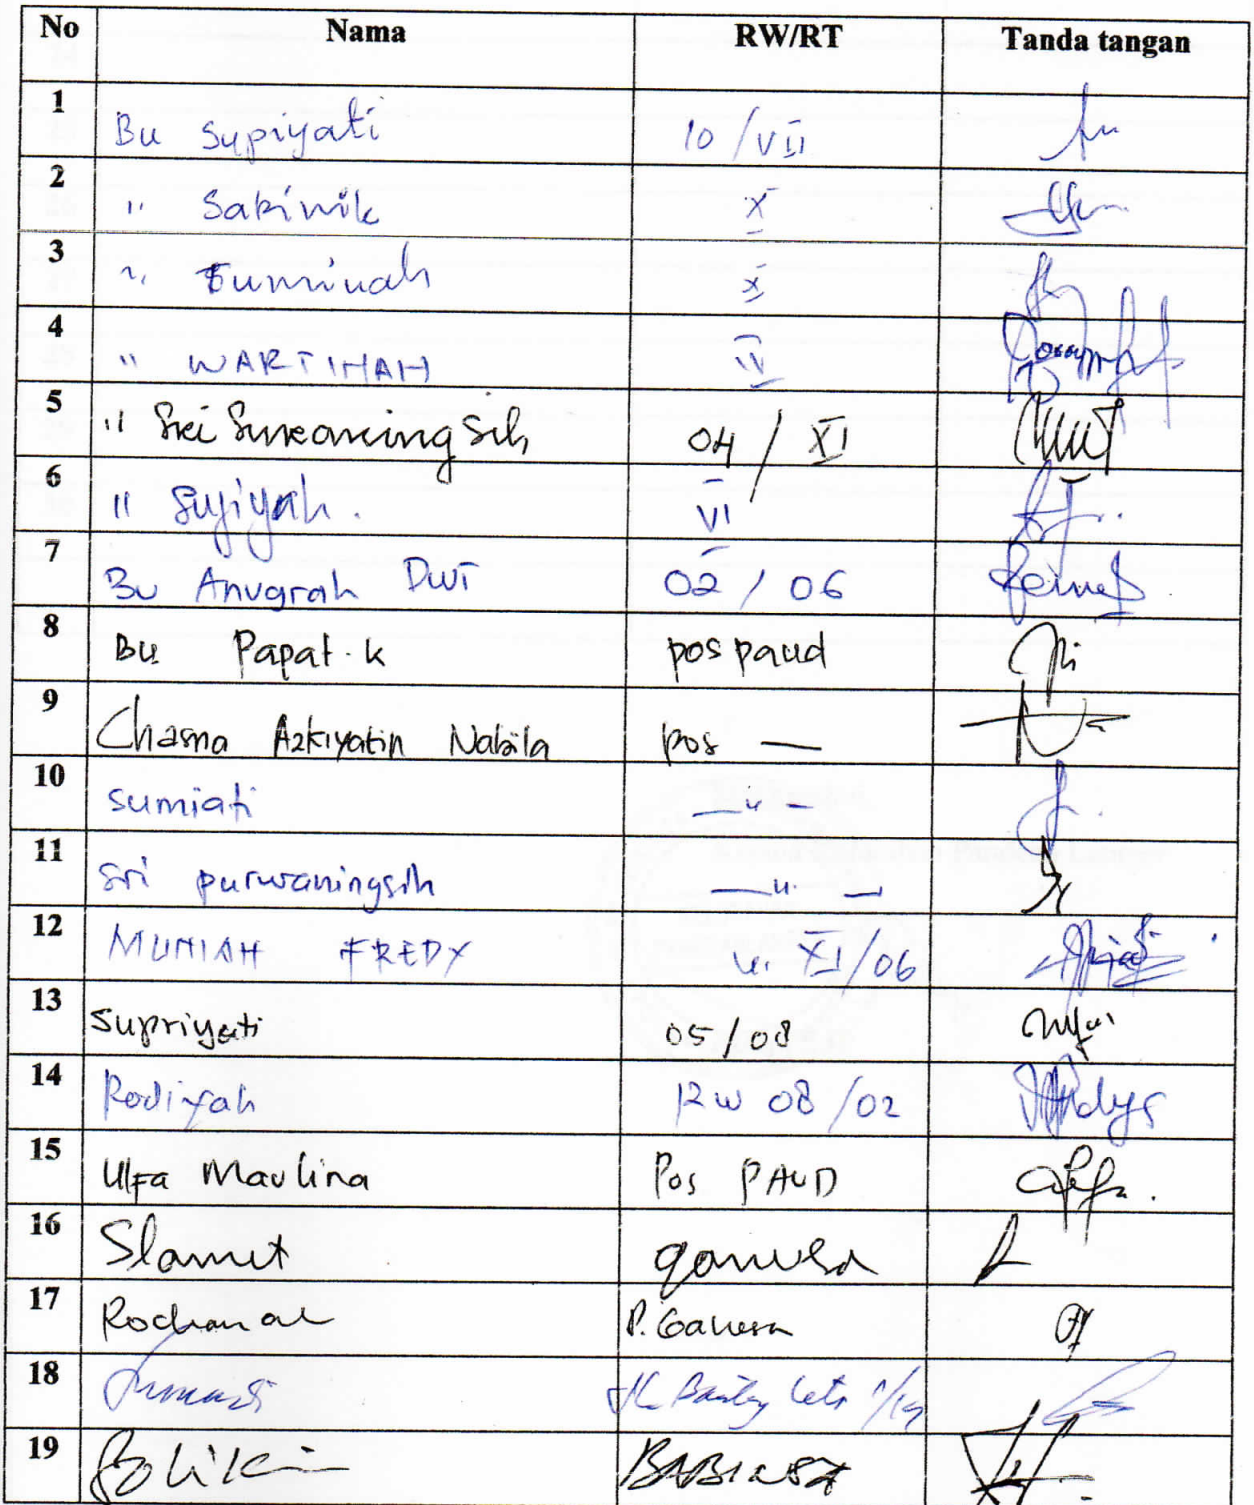 No Nama RW/RT Tanda tangan
1 Bu Supiyati 10 / VII
2 " Sakinik X
3 " Tuminah X
4 " WARTINAH IV
5 " Sri 04 / XI
6 " Sujiyah. VI
7 Bu Anugrah Dwi 02 / 06
8 Bu Papat. k pos paud
9 Chasna Azkiyatin Nabila pos —
10 sumiati — " —
11 Sri purwaningsih — " —
12 MUNIAH FREDY XI/06
13 Supriyati 05/08
14 Rodiyah RW 08/02
15 Ulfa Maulina Pos PAUD
16 Slamet
17 P. Ganesa
18
19 Solikin BABINSA